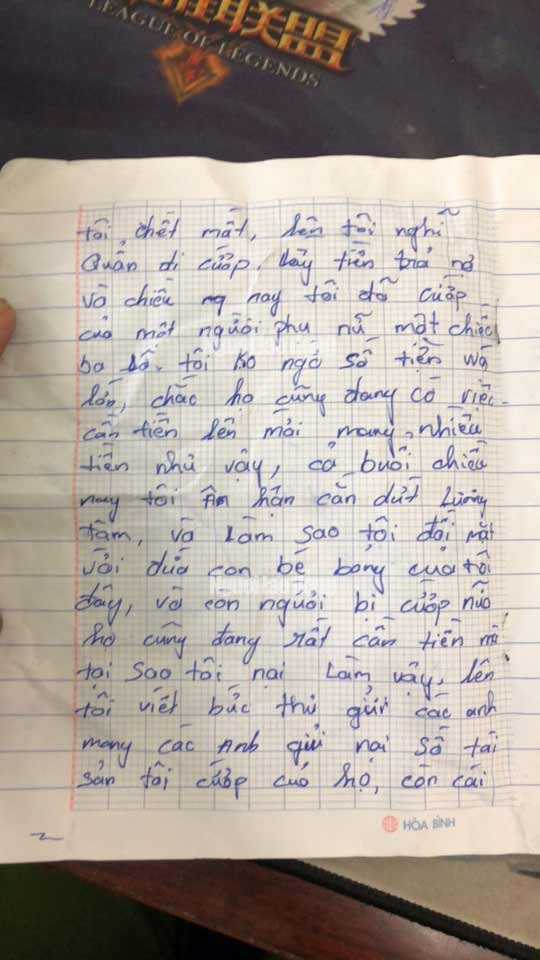 联盟
LEAGUE OF LEGENDS
tôi, chết mất, lên tôi nghĩ
Quẩn đi cướp, lấy tiền trả nợ
và chiều ng nay tôi đã cướp
của một người phụ nữ một chiếc
ba lô. tôi ko ngờ số tiền wá
lớn, chắc họ cũng đang có việc
cần tiền lên mới mang nhiều
tiền như vậy, cả buổi chiều
nay tôi Ân hận cắn dứt Lương
tâm, và Làm sao tôi đối mặt
với đứa con bé bỏng của tôi
đây, và con người bị cướp nữa
họ cũng đang rất cần tiền mà
tại sao tôi nại Làm vậy, lên
tôi viết bức thư gửi các anh
mong các Anh gửi nại số tài
sản tôi cướp của họ, còn cái
2
HÒA BÌNH